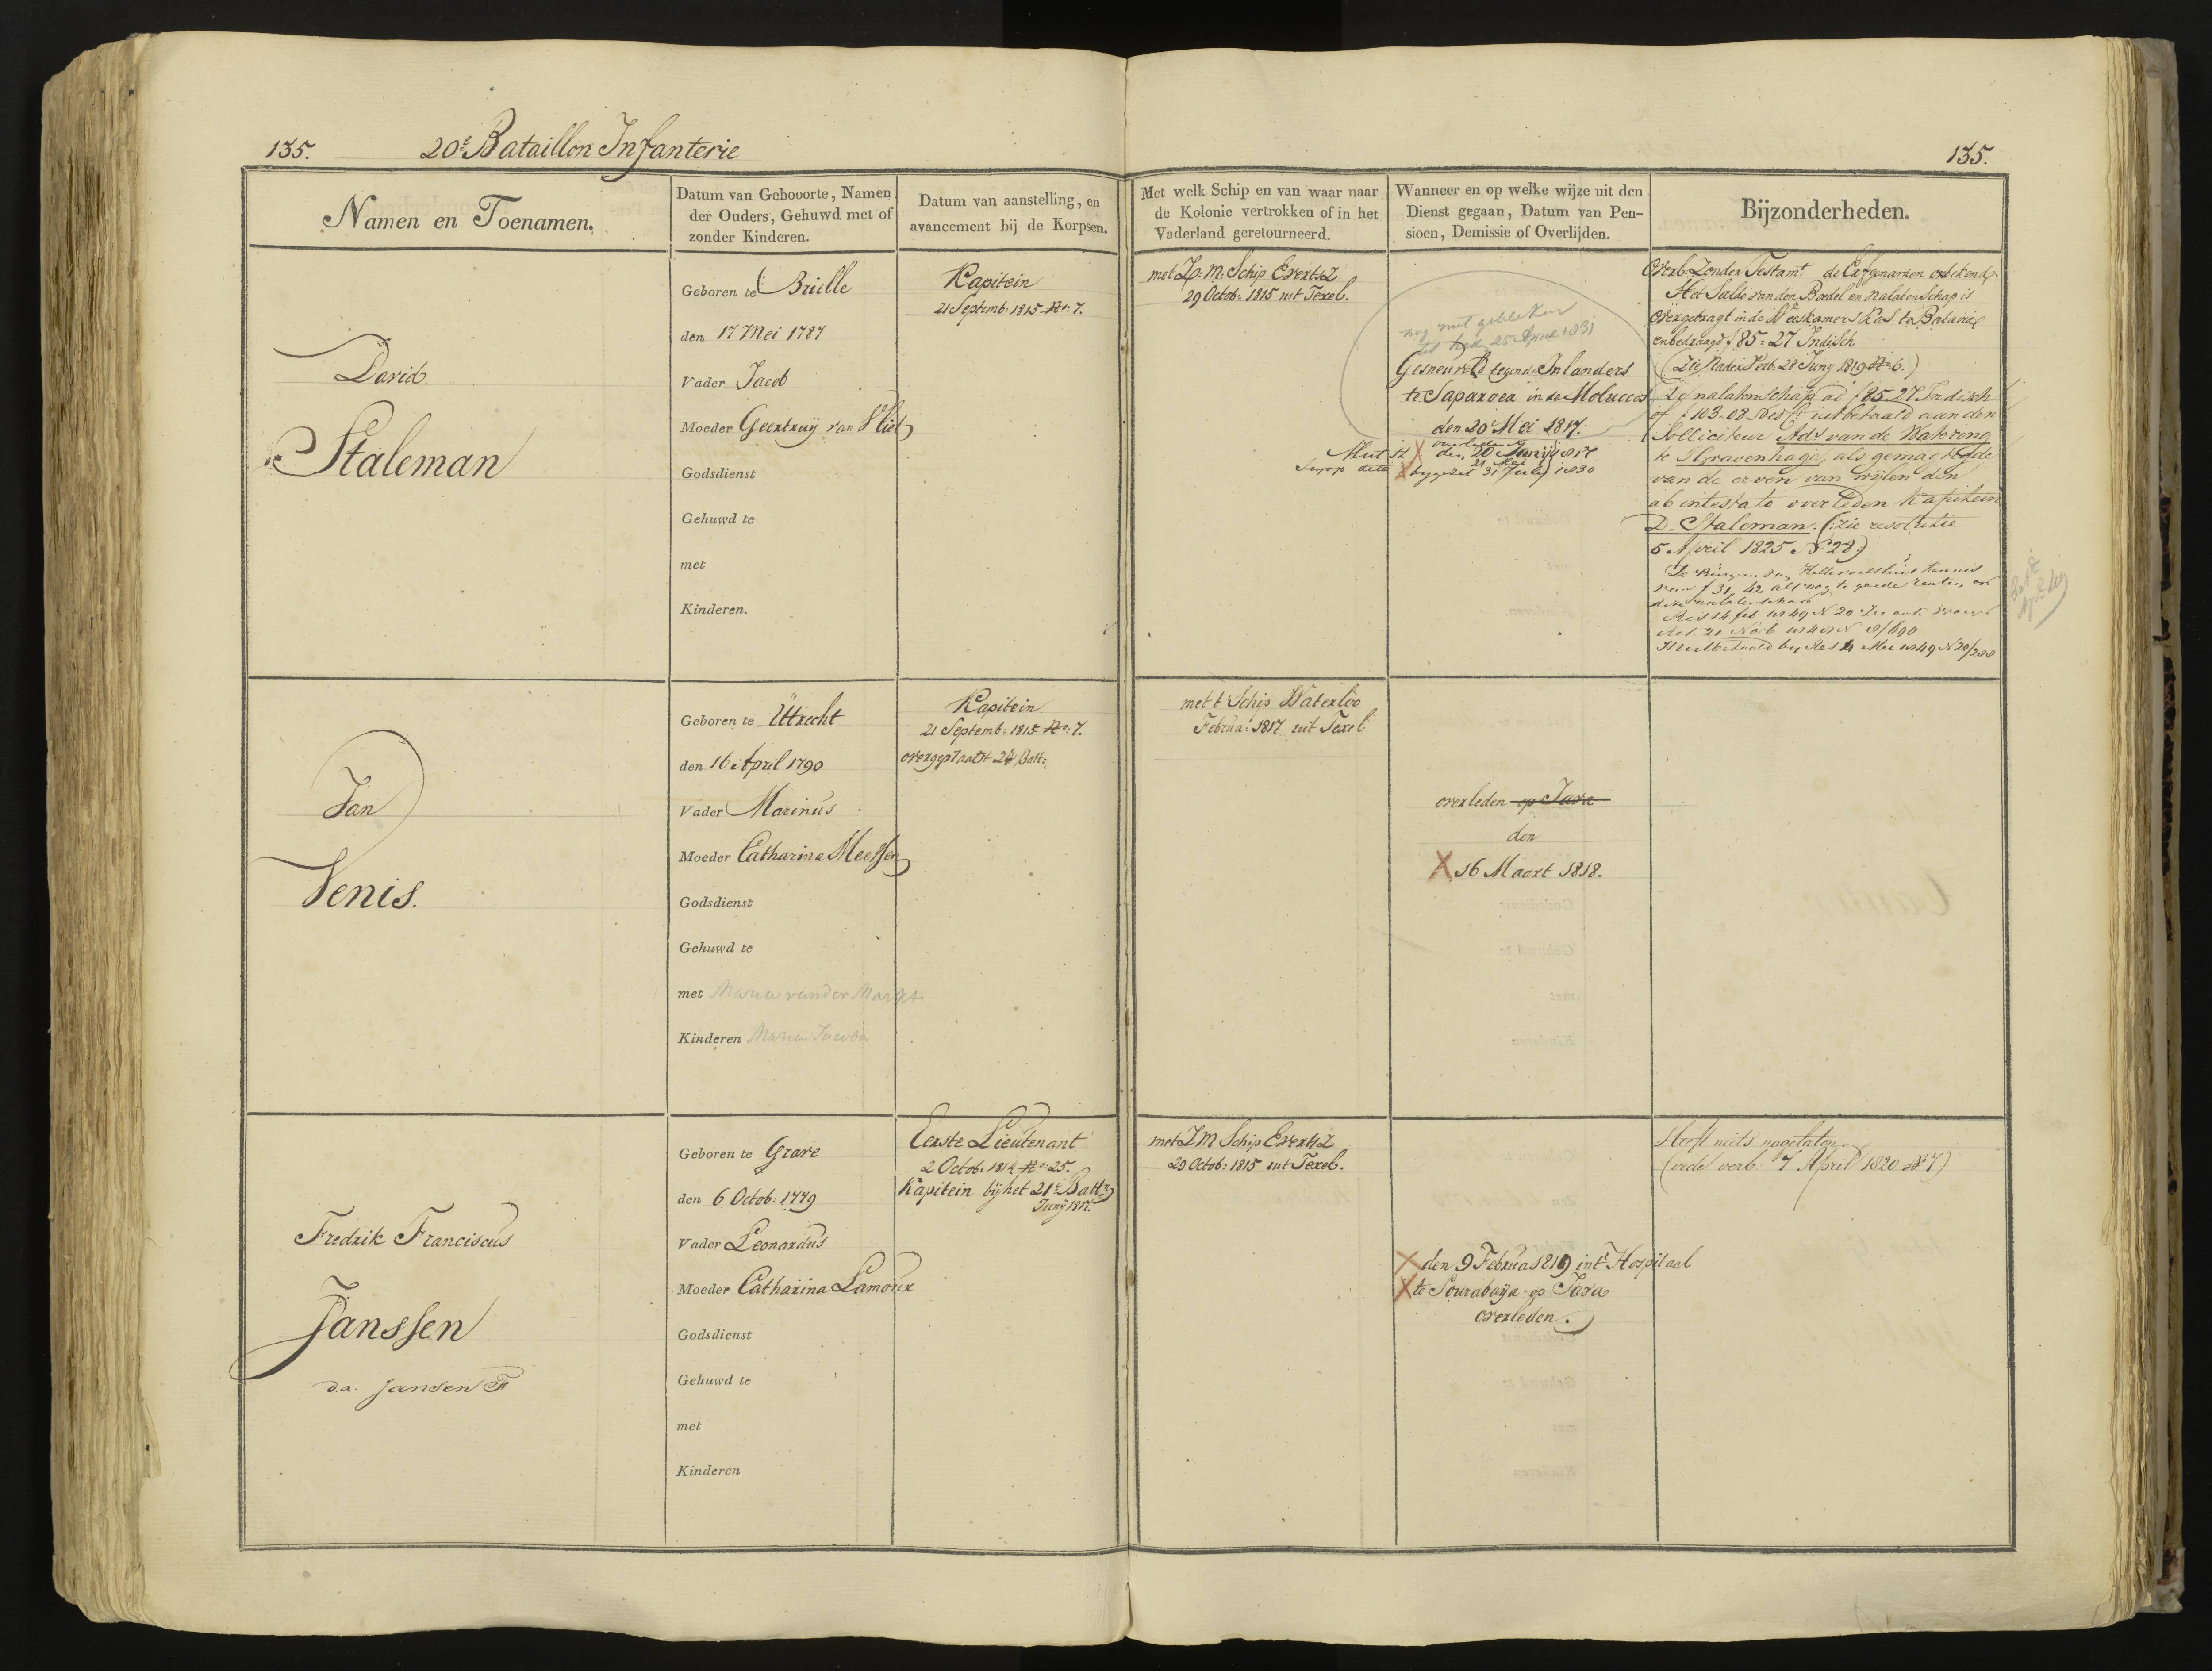 135. 20e Bataillon Infanterie
135.
Namen en Toenamen.
Datum van Gebooorte, Namen
der Ouders, Gehuwd met of
zonder Kinderen.
Datum van aanstelling, en
avancement bij de Korpsen.
Met welk Schip en van waar naar
de Kolonie vertrokken of in het
Vaderland geretourneerd.
Wanneer en op welke wijze uit den
Dienst gegaan, Datum van Pen-
sioen, Demissie of Overlijden.
Bijzonderheden.
David
Staleman
Geboren te Brielle
den 17 Mei 1787
Vader Jacob
Moeder Geertruy van Vliet
Godsdienst
Gehuwd te
met
Kinderen.
Kapitein
21 Septemb: 1815 No: 7.
met Z: M: Schip Evertsz
29 Octob: 1815 uit Texel.
nog niet gebleken
tot heden 25 April 1831
Gesneuveld tegen de Inlanders
te Saparoea in de Moluccos
den 20 Mei 1817.
overleden
den 20 Junij 1817
21 Mei
31 July 1830
Overl: Zonder Testamt de Erfgenamen onbekend.
Het Saldo van den Boedel en nalatenschap is
overgebragt in de Weeskamers Kas te Batavia
en bedraagd f 85-27 Indisch
(Zie Nader Verb. 28 Juny 1819 No: 6.)
De nalatenschap ad f 85-27 Indisch
of f 103-08 Nedl: uitbetaald aan den
Solliciteur Ads van de Watering
te 'sGravenhage, als gemachtigde
van de erven van wijlen den
ab intestato overleden Kapitein
D. Staleman. (zie resolutie
5 April 1825 No 28.)
Res 14 feb 1849 N 20
Res. 21 Novb
Uitbetaald by Res 21 Mei 1849 N 20/288
Jan
Venis.
Geboren te Utrecht
den 16 April 1790
Vader Marinus
Moeder Catharina Meessen
Godsdienst
Gehuwd te
met Maria van der Markt
Kinderen Maria Jacoba
Kapitein
21 Septemb: 1815 No: 7.
overgeplaatst 24 Batt:
met t Schip Waterloo
Februa: 1817 uit Texel
overleden op Java
den
16 Maart 1818.
Fredrik Franciscus
Janssen
d.a. Jansen F
Geboren te Grave
den 6 Octob: 1779
Vader Leonardus
Moeder Catharina Lamoux
Godsdienst
Gehuwd te
met
Kinderen
Eerste Lieutenant
2 Octob: 1814 No: 25.
Kapitein bij het 21e Batt:
Junij 1817.
met Z M Schip Evertsz
29 Octob: 1815 uit Texel.
den 9 Februa 1819 in t Hospitaal
te Sourabaya op Java
overleden.
Heeft niets nagelaten
(vide verb. 7 April 1820 No 7)